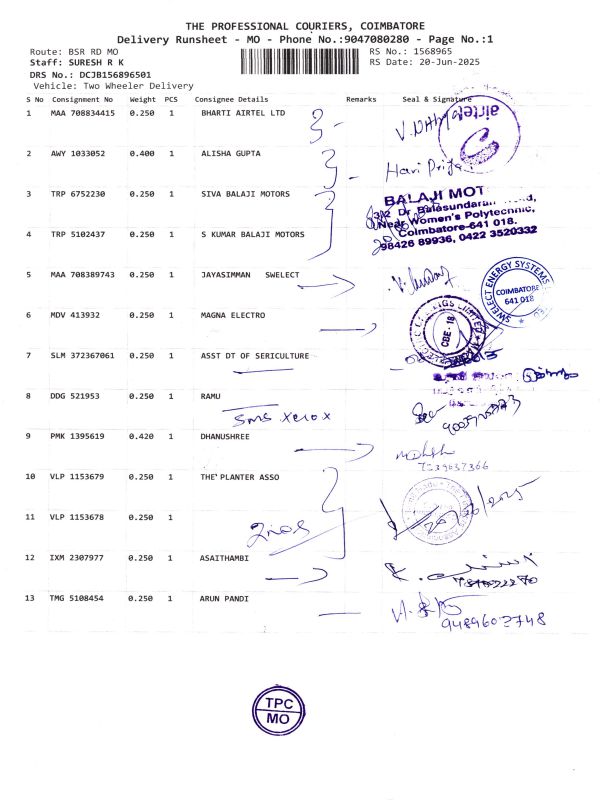 THE PROFESSIONAL COURIERS, COIMBATORE
Delivery Runsheet - MO - Phone No.:9047080280 - Page No.:1
Route: BSR RD MO RS No.: 1568965
Staff: SURESH R K RS Date: 20-Jun-2025
DRS No.: DCJB156896501
Vehicle: Two Wheeler Delivery
S No Consignment No Weight PCS Consignee Details Remarks Seal & Signature
1 MAA 708834415 0.250 1 BHARTI AIRTEL LTD
airtel
2 AWY 1033052 0.400 1 ALISHA GUPTA Hari Priya
3 TRP 6752230 0.250 1 SIVA BALAJI MOTORS
BALAJI MOT
Dr. Balasundaram
Near Women's Polytechnic,
4 TRP 5102437 0.250 1 S KUMAR BALAJI MOTORS Coimbatore-641 018.
98426 89936, 0422 3520332
5 MAA 708389743 0.250 1 JAYASIMMAN SWELECT
SWELECT ENERGY SYSTEMS
COIMBATORE
641 018
6 MDV 413932 0.250 1 MAGNA ELECTRO
CBE - 18
7 SLM 372367061 0.250 1 ASST DT OF SERICULTURE
8 DDG 521953 0.250 1 RAMU
Sms Xerox
9 PMK 1395619 0.420 1 DHANUSHREE
7239637366
10 VLP 1153679 0.250 1 THE PLANTER ASSO
11 VLP 1153678 0.250 1
2nos
12 IXM 2307977 0.250 1 ASAITHAMBI
13 TMG 5108454 0.250 1 ARUN PANDI
9489603748
TPC
MO